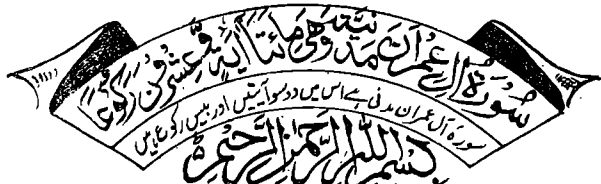 سُوْرَةُ اٰلِ عِمْرٰنَ مَدَنِيَّةٌ وَّهِيَ مِائَتَا اٰيَةٍ وَّعِشْرُوْنَ رُكُوْعًا
سورۃ آل عمران مدنی ہے اس میں دو سو آیتیں اور بیس رکوع ہیں
بِسْمِ اللّٰهِ الرَّحْمٰنِ الرَّحِيْمِ